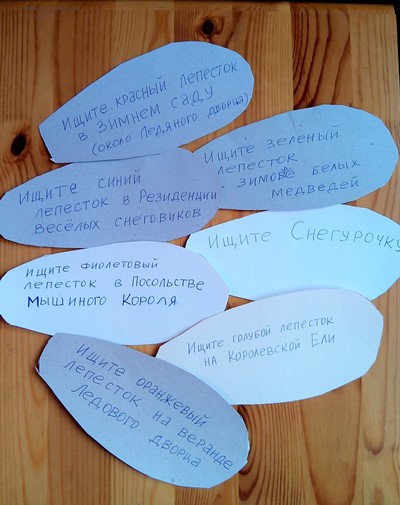 Ищите красный лепесток
в Зимнем саду
(около Ледяного дворца)
Ищите зелёный
лепесток
зимовье белых
медведей
Ищите синий
лепесток в Резиденции
весёлых снеговиков
Ищите Снегурочку
Ищите фиолетовый
лепесток в Посольстве
Мышиного Короля
Ищите голубой лепесток
на Королевской Ели
Ищите оранжевый
лепесток на веранде
Ледового дворца